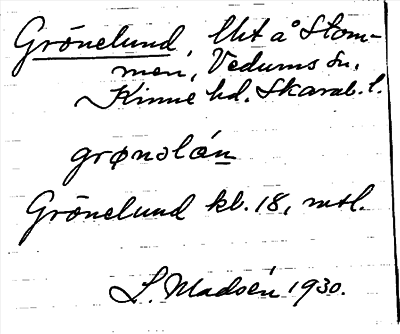 Grönelund, lht å Stom-
men, Vedums sn,
Kinne hd. Skarab. l.
grønəlán
Grönelund kb. 18, mtl.
L. Madsén 1930.